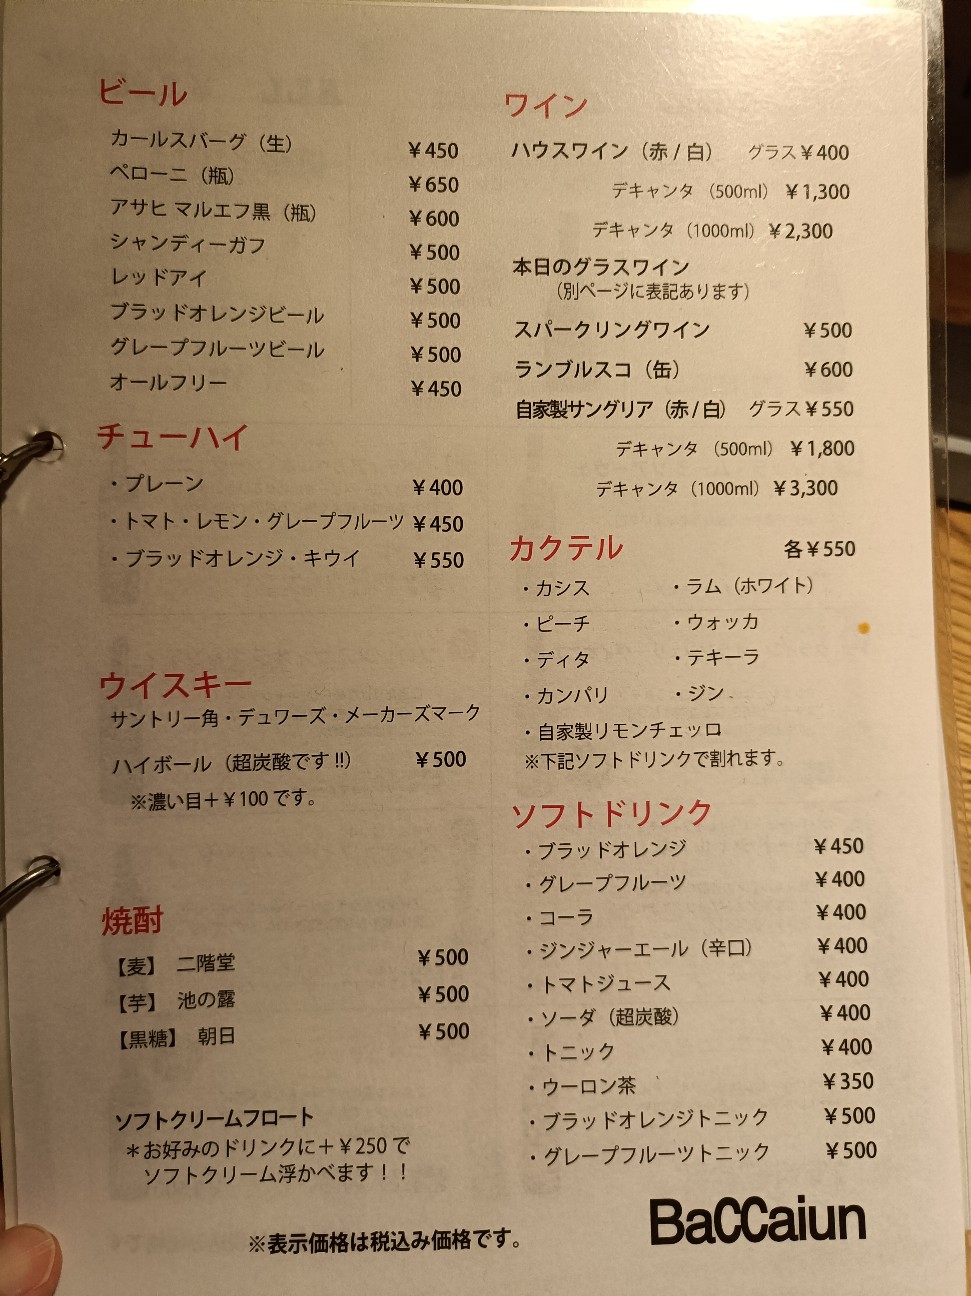 ビール
カールスバーグ（生） ￥450
ペローニ（瓶） ￥650
アサヒ マルエフ黒（瓶） ￥600
シャンディーガフ ￥500
レッドアイ ￥500
ブラッドオレンジビール ￥500
グレープフルーツビール ￥500
オールフリー ￥450
チューハイ
・プレーン ￥400
・トマト・レモン・グレープフルーツ ￥450
・ブラッドオレンジ・キウイ ￥550
ウイスキー
サントリー角・デュワーズ・メーカーズマーク
ハイボール（超炭酸です!!） ￥500
※濃い目＋￥100です。
焼酎
【麦】 二階堂 ￥500
【芋】 池の露 ￥500
【黒糖】 朝日 ￥500
ソフトクリームフロート
＊お好みのドリンクに＋￥250で
ソフトクリーム浮かべます！！
ワイン
ハウスワイン（赤/白） グラス￥400
デキャンタ（500ml） ￥1,300
デキャンタ（1000ml） ￥2,300
本日のグラスワイン
（別ページに表記あります）
スパークリングワイン ￥500
ランブルスコ（缶） ￥600
自家製サングリア（赤/白） グラス￥550
デキャンタ（500ml） ￥1,800
デキャンタ（1000ml） ￥3,300
カクテル 各￥550
・カシス ・ラム（ホワイト）
・ピーチ ・ウォッカ
・ディタ ・テキーラ
・カンパリ ・ジン
・自家製リモンチェッロ
※下記ソフトドリンクで割れます。
ソフトドリンク
・ブラッドオレンジ ￥450
・グレープフルーツ ￥400
・コーラ ￥400
・ジンジャーエール（辛口） ￥400
・トマトジュース ￥400
・ソーダ（超炭酸） ￥400
・トニック ￥400
・ウーロン茶 ￥350
・ブラッドオレンジトニック ￥500
・グレープフルーツトニック ￥500
※表示価格は税込み価格です。
BaCCaiun